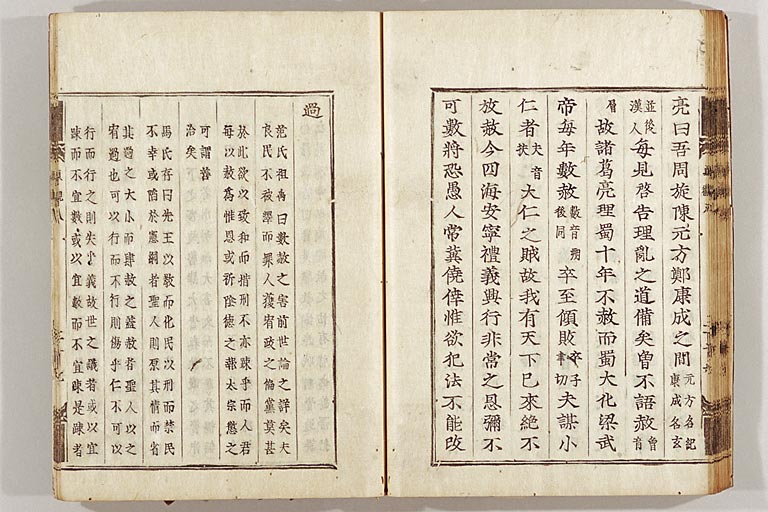 亮曰吾周旋陳元方鄭康成之間元方名紀康成名玄
並後漢人每見啓告理亂之道備矣曾不語赦曾音
層故諸葛亮理蜀十年不赦而蜀大化梁武
帝每年數赦數音朔後同卒至傾敗卒子聿切夫謀小
仁者夫音扶大仁之賊故我有天下已來絕不
放赦今四海安寧禮義興行非常之恩彌不
可數將恐愚人常冀僥倖惟欲犯法不能改
過
范氏祖禹曰數赦之害前世論之詳矣夫
良民不被澤而罪人獲宥政之偏黨莫甚
於此欲以致和而措刑不亦疎乎而人君
每以赦爲推恩或祈陰德之報太宗懲之
可謂善
治矣
馬氏存曰先王以敎而化民以刑而禁民
不幸或陷於憲網者聖人則原其情而省
其過之大小而肆赦之蓋赦者聖人以之
宥過也可以行而不行則傷乎仁不可以
行而行之則失乎義故世之議者或以宜
疎而不宜數或以宜數而不宜疎是疎者